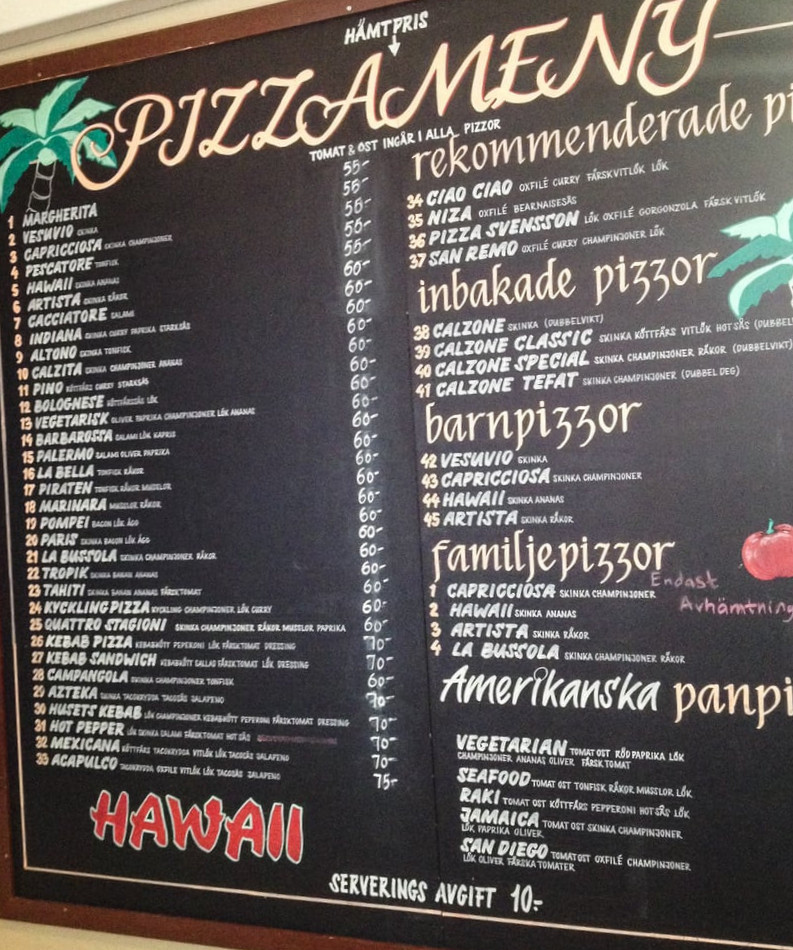 HÄMTPRIS
PIZZAMENY
TOMAT & OST INGÅR I ALLA PIZZOR
1 MARGHERITA 55:-
2 VESUVIO SKINKA 55:-
3 CAPRICCIOSA SKINKA CHAMPINJONER 55:-
4 PESCATORE TONFISK 55:-
5 HAWAII SKINKA ANANAS 55:-
6 ARTISTA SKINKA RÄKOR 60:-
7 CACCIATORE SALAMI 60:-
8 INDIANA SKINKA CURRY PAPRIKA STARKSÅS 60:-
9 ALTONO SKINKA TONFISK 60:-
10 CALZITA SKINKA CHAMPINJONER ANANAS 60:-
11 PINO KÖTTFÄRS CURRY STARKSÅS 60:-
12 BOLOGNESE KÖTTFÄRSSÅS LÖK 60:-
13 VEGETARISK OLIVER PAPRIKA CHAMPINJONER LÖK ANANAS 60:-
14 BARBAROSSA SALAMI LÖK KAPRIS 60:-
15 PALERMO SALAMI OLIVER PAPRIKA 60:-
16 LA BELLA TONFISK RÄKOR 60:-
17 PIRATEN TONFISK RÄKOR MUSSLOR 60:-
18 MARINARA MUSSLOR RÄKOR 60:-
19 POMPEI BACON LÖK ÄGG 60:-
20 PARIS SKINKA BACON LÖK ÄGG 60:-
21 LA BUSSOLA SKINKA CHAMPINJONER RÄKOR 60:-
22 TROPIK SKINKA BANAN ANANAS 60:-
23 TAHITI SKINKA BANAN ANANAS FÄRSKTOMAT 60:-
24 KYCKLINGPIZZA KYCKLING CHAMPINJONER LÖK CURRY 60:-
25 QUATTRO STAGIONI SKINKA CHAMPINJONER RÄKOR MUSSLOR PAPRIKA 60:-
26 KEBAB PIZZA KEBABKÖTT PEPERONI LÖK FÄRSKTOMAT DRESSING 70:-
27 KEBAB SANDWICH KEBABKÖTT SALLAD FÄRSKTOMAT LÖK DRESSING 70:-
28 CAMPANGOLA SKINKA CHAMPINJONER TONFISK 60:-
29 AZTEKA SKINKA TACOKRYDDA TACOSÅS JALAPENO 70:-
30 HUSETS KEBAB LÖK CHAMPINJONER KEBABKÖTT PEPERONI FÄRSKTOMAT DRESSING 70:-
31 HOT PEPPER LÖK SKINKA SALAMI FÄRSKTOMAT HOTSÅS 70:-
32 MEXICANA KÖTTFÄRS TACOKRYDDA VITLÖK LÖK TACOSÅS JALAPENO 70:-
33 ACAPULCO TACOKRYDDA OXFILE VITLÖK LÖK TACOSÅS JALAPENO 75:-
HAWAII
SERVERINGS AVGIFT 10:-
rekommenderade pi
34 CIAO CIAO OXFILÉ CURRY FÄRSKVITLÖK LÖK
35 NIZA OXFILÉ BEARNAISESÅS
36 PIZZA SVENSSON LÖK OXFILÉ GORGONZOLA FÄRSK VITLÖK
37 SAN REMO OXFILÉ CURRY CHAMPINJONER LÖK
inbakade pizzor
38 CALZONE SKINKA (DUBBELVIKT)
39 CALZONE CLASSIC SKINKA KÖTTFÄRS VITLÖK HOT SÅS (DUBBEL
40 CALZONE SPECIAL SKINKA CHAMPINJONER RÄKOR (DUBBELVIKT)
41 CALZONE TEFAT SKINKA CHAMPINJONER (DUBBEL DEG)
barnpizzor
42 VESUVIO SKINKA
43 CAPRICCIOSA SKINKA CHAMPINJONER
44 HAWAII SKINKA ANANAS
45 ARTISTA SKINKA RÄKOR
familjepizzor
Endast
Avhämtning
1 CAPRICCIOSA SKINKA CHAMPINJONER
2 HAWAII SKINKA ANANAS
3 ARTISTA SKINKA RÄKOR
4 LA BUSSOLA SKINKA CHAMPINJONER RÄKOR
Amerikanska panpi
VEGETARIAN TOMAT OST RÖD PAPRIKA LÖK
CHAMPINJONER ANANAS OLIVER FÄRSK TOMAT
SEAFOOD TOMAT OST TONFISK RÄKOR MUSSLOR LÖK
RAKI TOMAT OST KÖTTFÄRS PEPPERONI HOTSÅS LÖK
JAMAICA TOMAT OST SKINKA CHAMPINJONER
LÖK PAPRIKA OLIVER
SAN DIEGO TOMAT OST OXFILÉ CHAMPINJONER
LÖK OLIVER FÄRSKA TOMATER